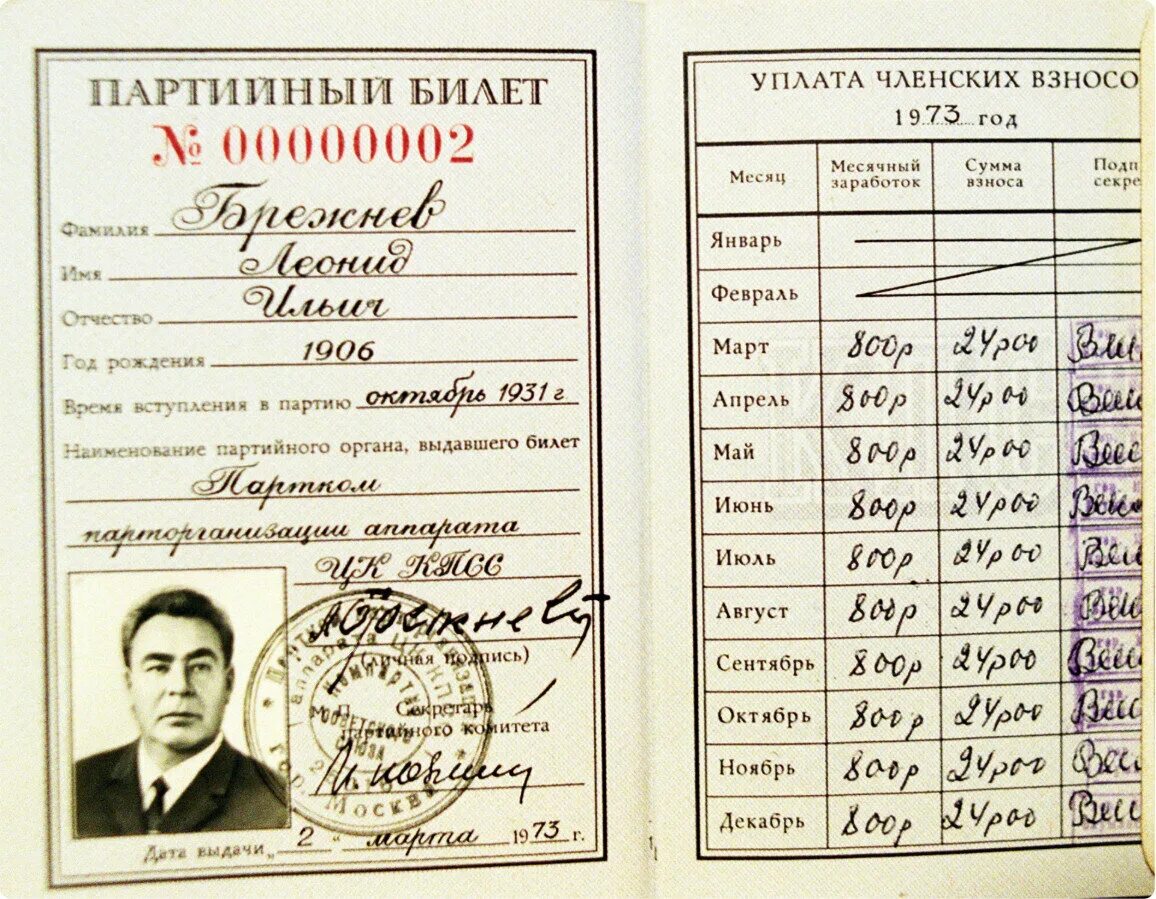 ПАРТИЙНЫЙ БИЛЕТ
№ 00000002
Фамилия Брежнев
Имя Леонид
Отчество Ильич
Год рождения 1906
Время вступления в партию октябрь 1931 г
Наименование партийного органа, выдавшего билет
Партком
парторганизации аппарата
ЦК КПСС
(личная подпись)
М. П. Секретарь
партийного комитета
гор. Москва
Дата выдачи „ 2 “ марта 1973 г.
УПЛАТА ЧЛЕНСКИХ ВЗНОСО
1973 год
Месяц Месячный заработок Сумма взноса Подп секре
Январь
Февраль
Март 800р 24р00
Апрель 800р 24р00
Май 800р 24р00
Июнь 800р 24р00
Июль 800р 24р00
Август 800р 24р00
Сентябрь 800р 24р00
Октябрь 800р 24р00
Ноябрь 800р 24р00
Декабрь 800р 24р00